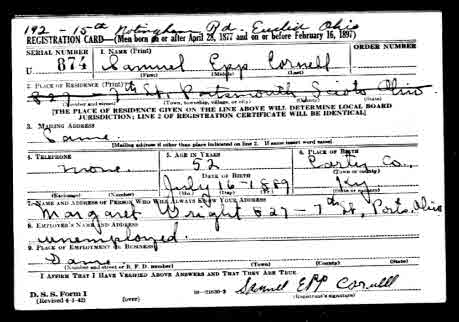 192 - 15th Notingham Rd. Euclid Ohio
REGISTRATION CARD—(Men born on or after April 28, 1877 and on or before February 16, 1897)
SERIAL NUMBER
1. NAME (Print)
ORDER NUMBER
U 874
Samuel Epp Cornell
(First) (Middle) (Last)
2. PLACE OF RESIDENCE (Print)
7th St. Portsmouth Scioto Ohio
(Number and street) (Town, township, village, or city) (County) (State)
[THE PLACE OF RESIDENCE GIVEN ON THE LINE ABOVE WILL DETERMINE LOCAL BOARD
JURISDICTION; LINE 2 OF REGISTRATION CERTIFICATE WILL BE IDENTICAL]
3. MAILING ADDRESS
Same
[Mailing address if other than place indicated on line 2. If same insert word same]
4. TELEPHONE
5. AGE IN YEARS
6. PLACE OF BIRTH
none
52
Carty Co.,
DATE OF BIRTH
(Town or county)
July 16 - 1889
Ky
(Exchange) (Number)
(Mo.) (Day) (Yr.)
(State or country)
7. NAME AND ADDRESS OF PERSON WHO WILL ALWAYS KNOW YOUR ADDRESS
Margaret Wright 827 - 7th St, Ports, Ohio
8. EMPLOYER'S NAME AND ADDRESS
unemployed.
9. PLACE OF EMPLOYMENT OR BUSINESS
Same
(Number and street or R. F. D. number) (Town) (County) (State)
I AFFIRM THAT I HAVE VERIFIED ABOVE ANSWERS AND THAT THEY ARE TRUE.
D. S. S. Form 1
(Revised 4-1-42) (over)
16—21630-2
Samuel EPP Cornell
(Registrant's signature)